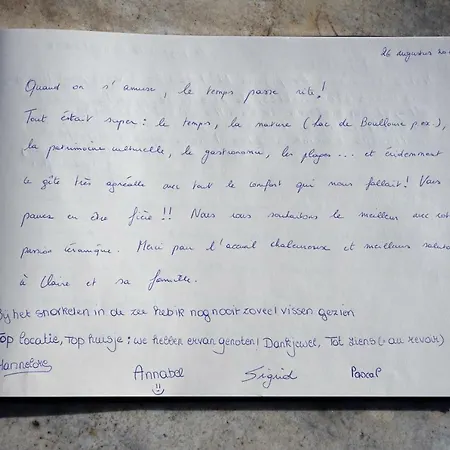 26 augustus 20
Quand on s'amuse, le temps passe vite!
Tout était super: le temps, la nature (lac de Boulloire p.ex.),
la patrimoine culturelle, le gastronomie, les plages... et évidemment
le gîte très agréable avec tout le comfort qui nous fallait! Vous
pouvez en être fière!! Nous vous souhaitons le meilleur avec votre
passion céramique. Merci pour l'acceuil chaleureux et meilleures
à Claire et sa famille.
Bij het snorkelen in de zee heb ik nog nooit zoveel vissen gezien
Top locatie, Top huisje: we hebben ervan genoten! Dankjewel, Tot ziens (= au revoir)
Hannelore Annabel Sigrid Pascal